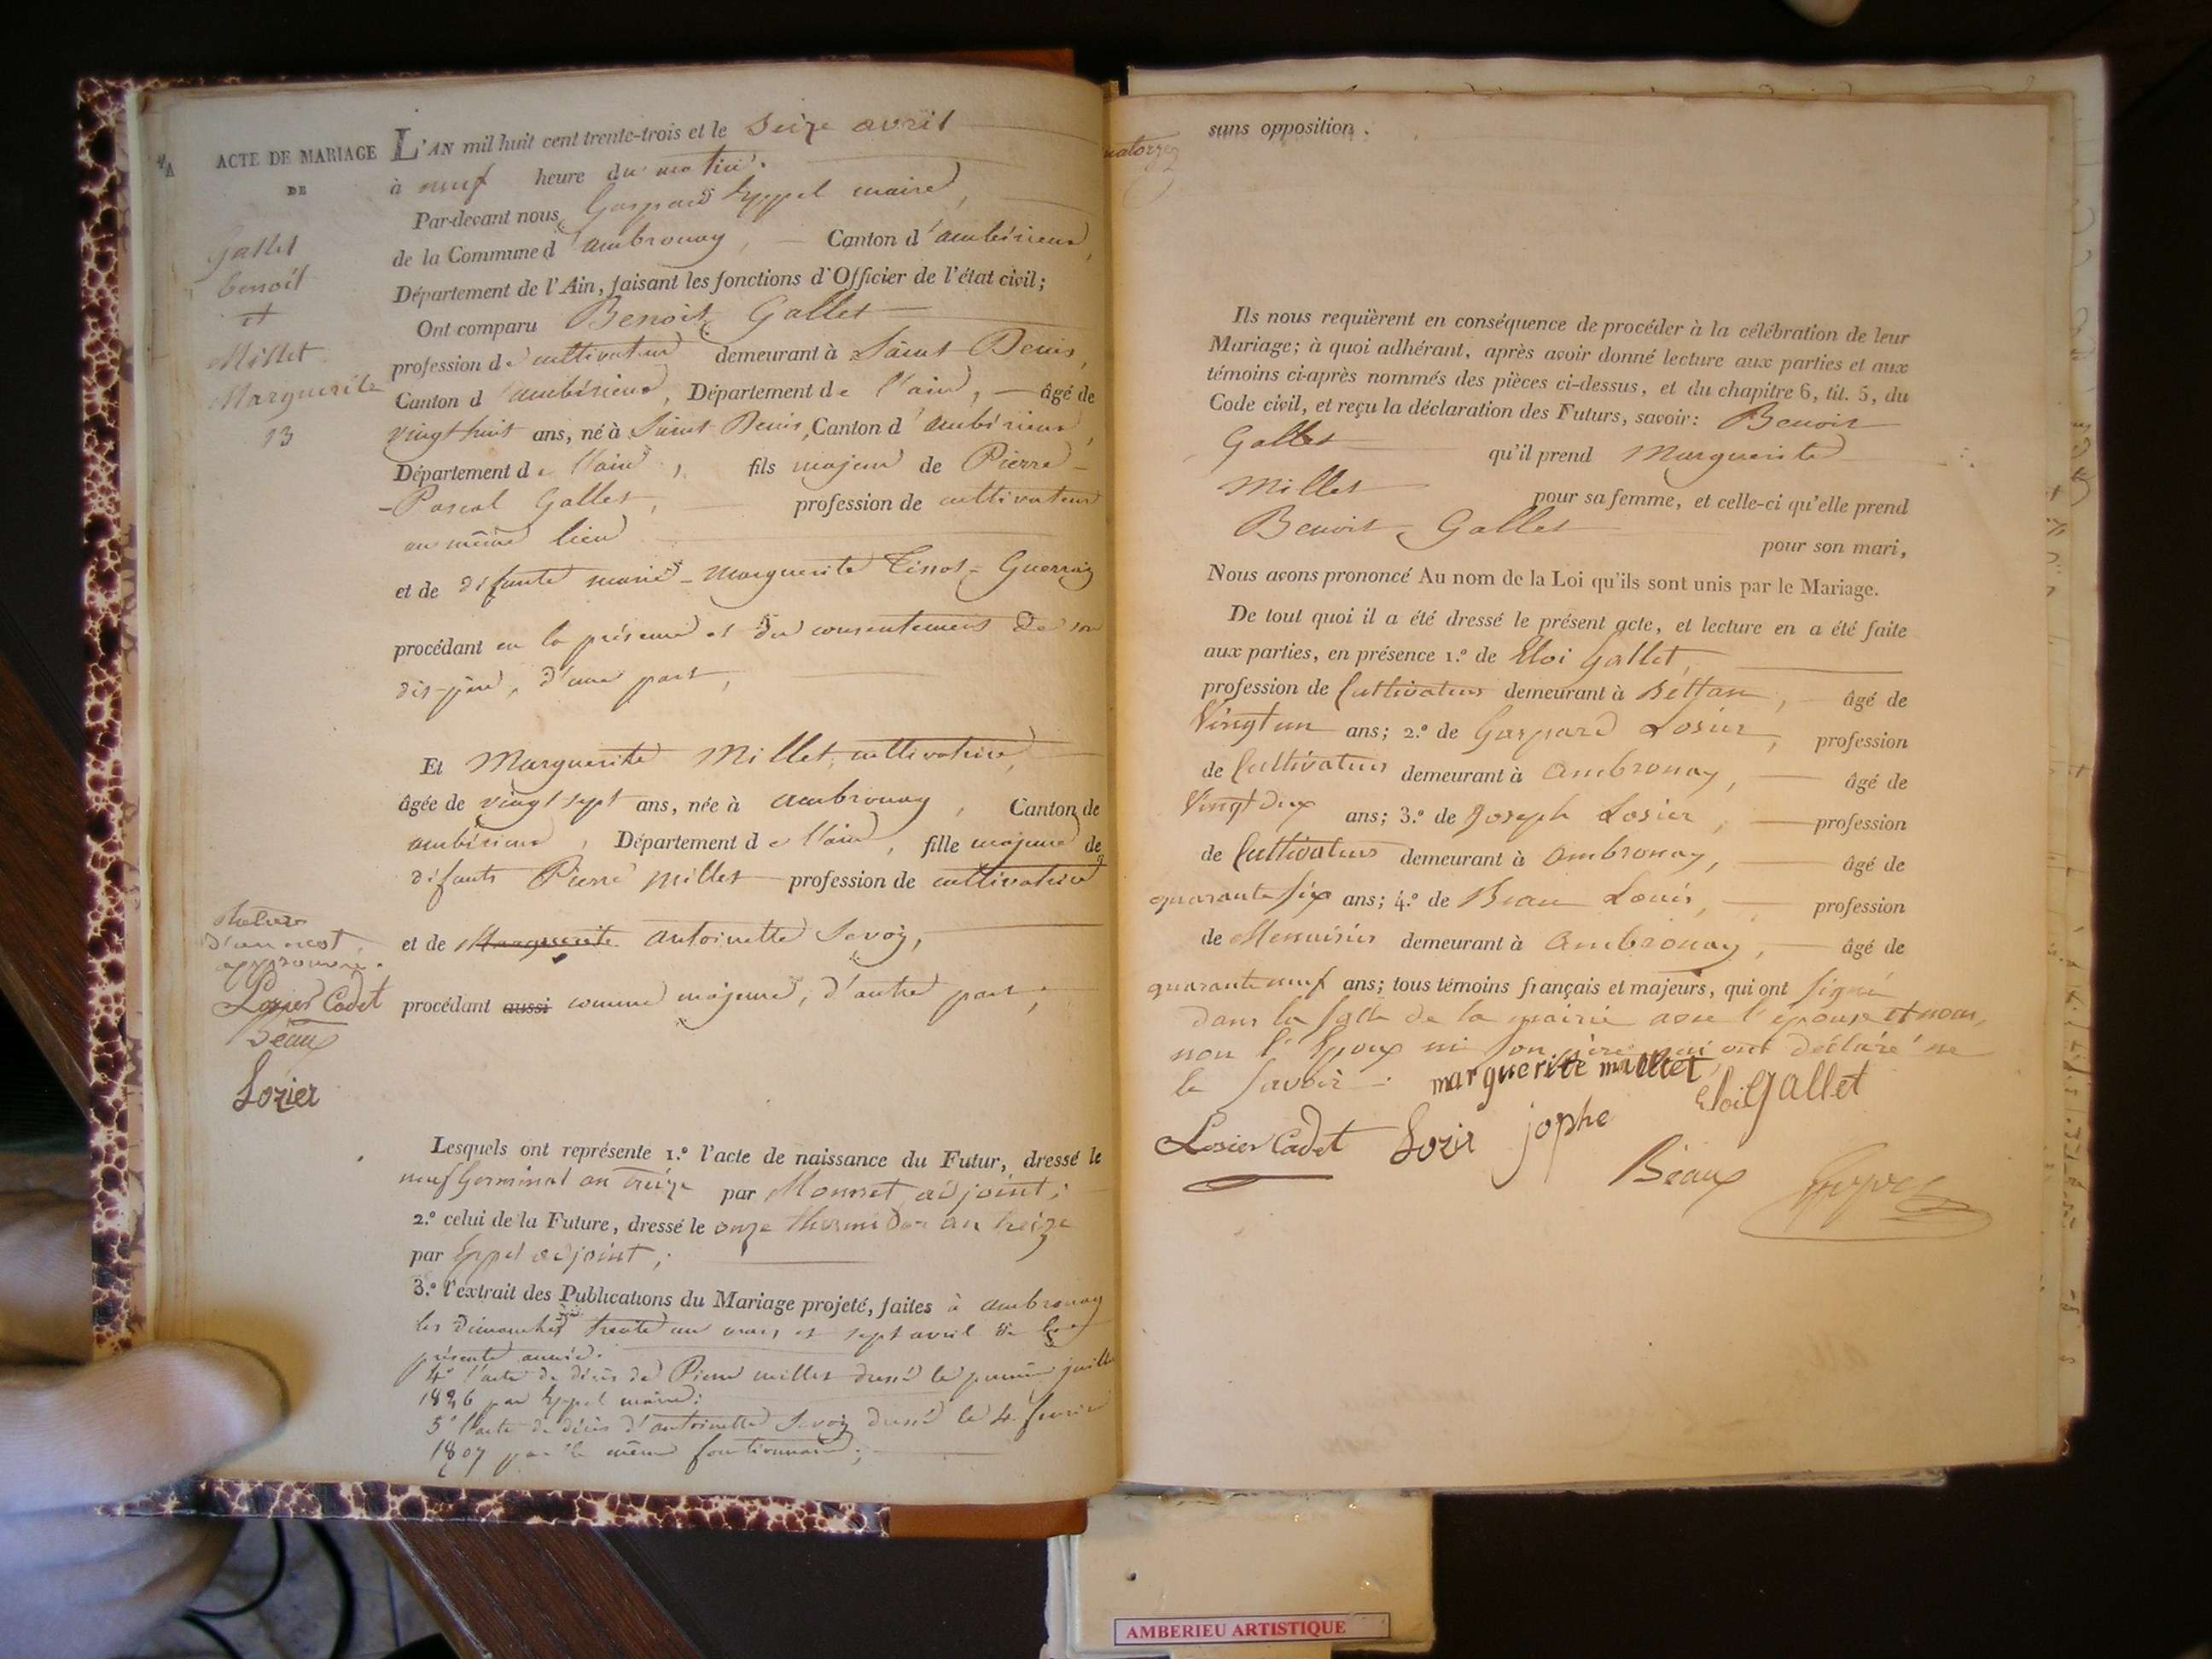 ACTE DE MARIAGE
DE
Gallet
benoit
et
Millet
Marguerite
13
L'AN mil huit cent trente-trois et le Seize avril
à neuf heure du matin.
Par-devant nous Gaspard Eppel maire,
de la Commune d'ambronay, Canton d'ambérieux,
Département de l'Ain, faisant les fonctions d'Officier de l'état civil;
Ont comparu Benoit Gallet
profession de cultivateur demeurant à Saint Denis,
Canton d'ambérieux, Département de l'ain, âgé de
vingt huit ans, né à Saint Denis, Canton d'ambérieux,
Département de l'ain, fils majeur de Pierre-
-Pascal Gallet, profession de cultivateur
au même lieu
et de défunte marie-Marguerite Tissot-Guerraz
procédant en la présence et du consentement de son
dit-père, d'une part,
Et Marguerite Millet, cultivatrice,
âgée de vingt sept ans, née à ambronay, Canton de
ambérieux, Département de l'ain, fille majeure de
défunts Pierre Millet profession de cultivateur
et de Marguerite antoinette Savoy,
procédant aussi comme majeure, d'autre part;
d'un mot
approuvée.
Losier Cadet
Beaux
Lozier
Lesquels ont représente 1.º l'acte de naissance du Futur, dressé le
neuf Germinal an treize par Monnet adjoint;
2.º celui de la Future, dressé le onze thermidor an treize
par Eppel adjoint;
3.º l'extrait des Publications du Mariage projeté, faites à ambronay
les dimanches trente un mars et sept avril de la
présente année.
4º l'acte de décès de Pierre millet dressé le premier juillet
1826 par Eppel maire;
5º l'acte de décès d'antoinette Savoy dressé le 4 fevrier
1807 par le même fonctionnaire;
sans opposition.
Ils nous requièrent en conséquence de procéder à la célébration de leur
Mariage; à quoi adhérant, après avoir donné lecture aux parties et aux
témoins ci-après nommés des pièces ci-dessus, et du chapitre 6, tit. 5, du
Code civil, et reçu la déclaration des Futurs, savoir: Benoit
Gallet qu'il prend Marguerite
Millet pour sa femme, et celle-ci qu'elle prend
Benoit Gallet pour son mari,
Nous avons prononcé Au nom de la Loi qu'ils sont unis par le Mariage.
De tout quoi il a été dressé le présent acte, et lecture en a été faite
aux parties, en présence 1.º de Eloi Gallet,
profession de Cultivateur demeurant à Bettan, âgé de
Vingt un ans; 2.º de Gaspard Losier, profession
de Cultivateur demeurant à Ambronay, âgé de
Vingt deux ans; 3.º de Joseph Losier, profession
de Cultivateur demeurant à Ambronay, âgé de
quarante six ans; 4.º de Beau Louis, profession
de Menuisier demeurant à Ambronay, âgé de
quarante neuf ans; tous témoins français et majeurs, qui ont signé
dans la salle de la mairie avec l'épouse et nous,
non l'Epoux ni son père qui ont déclaré ne
le savoir.
marguerite millet
Eloi Gallet
Losier Cadet Lozir jophe
Beaux Eppel
AMBERIEU ARTISTIQUE